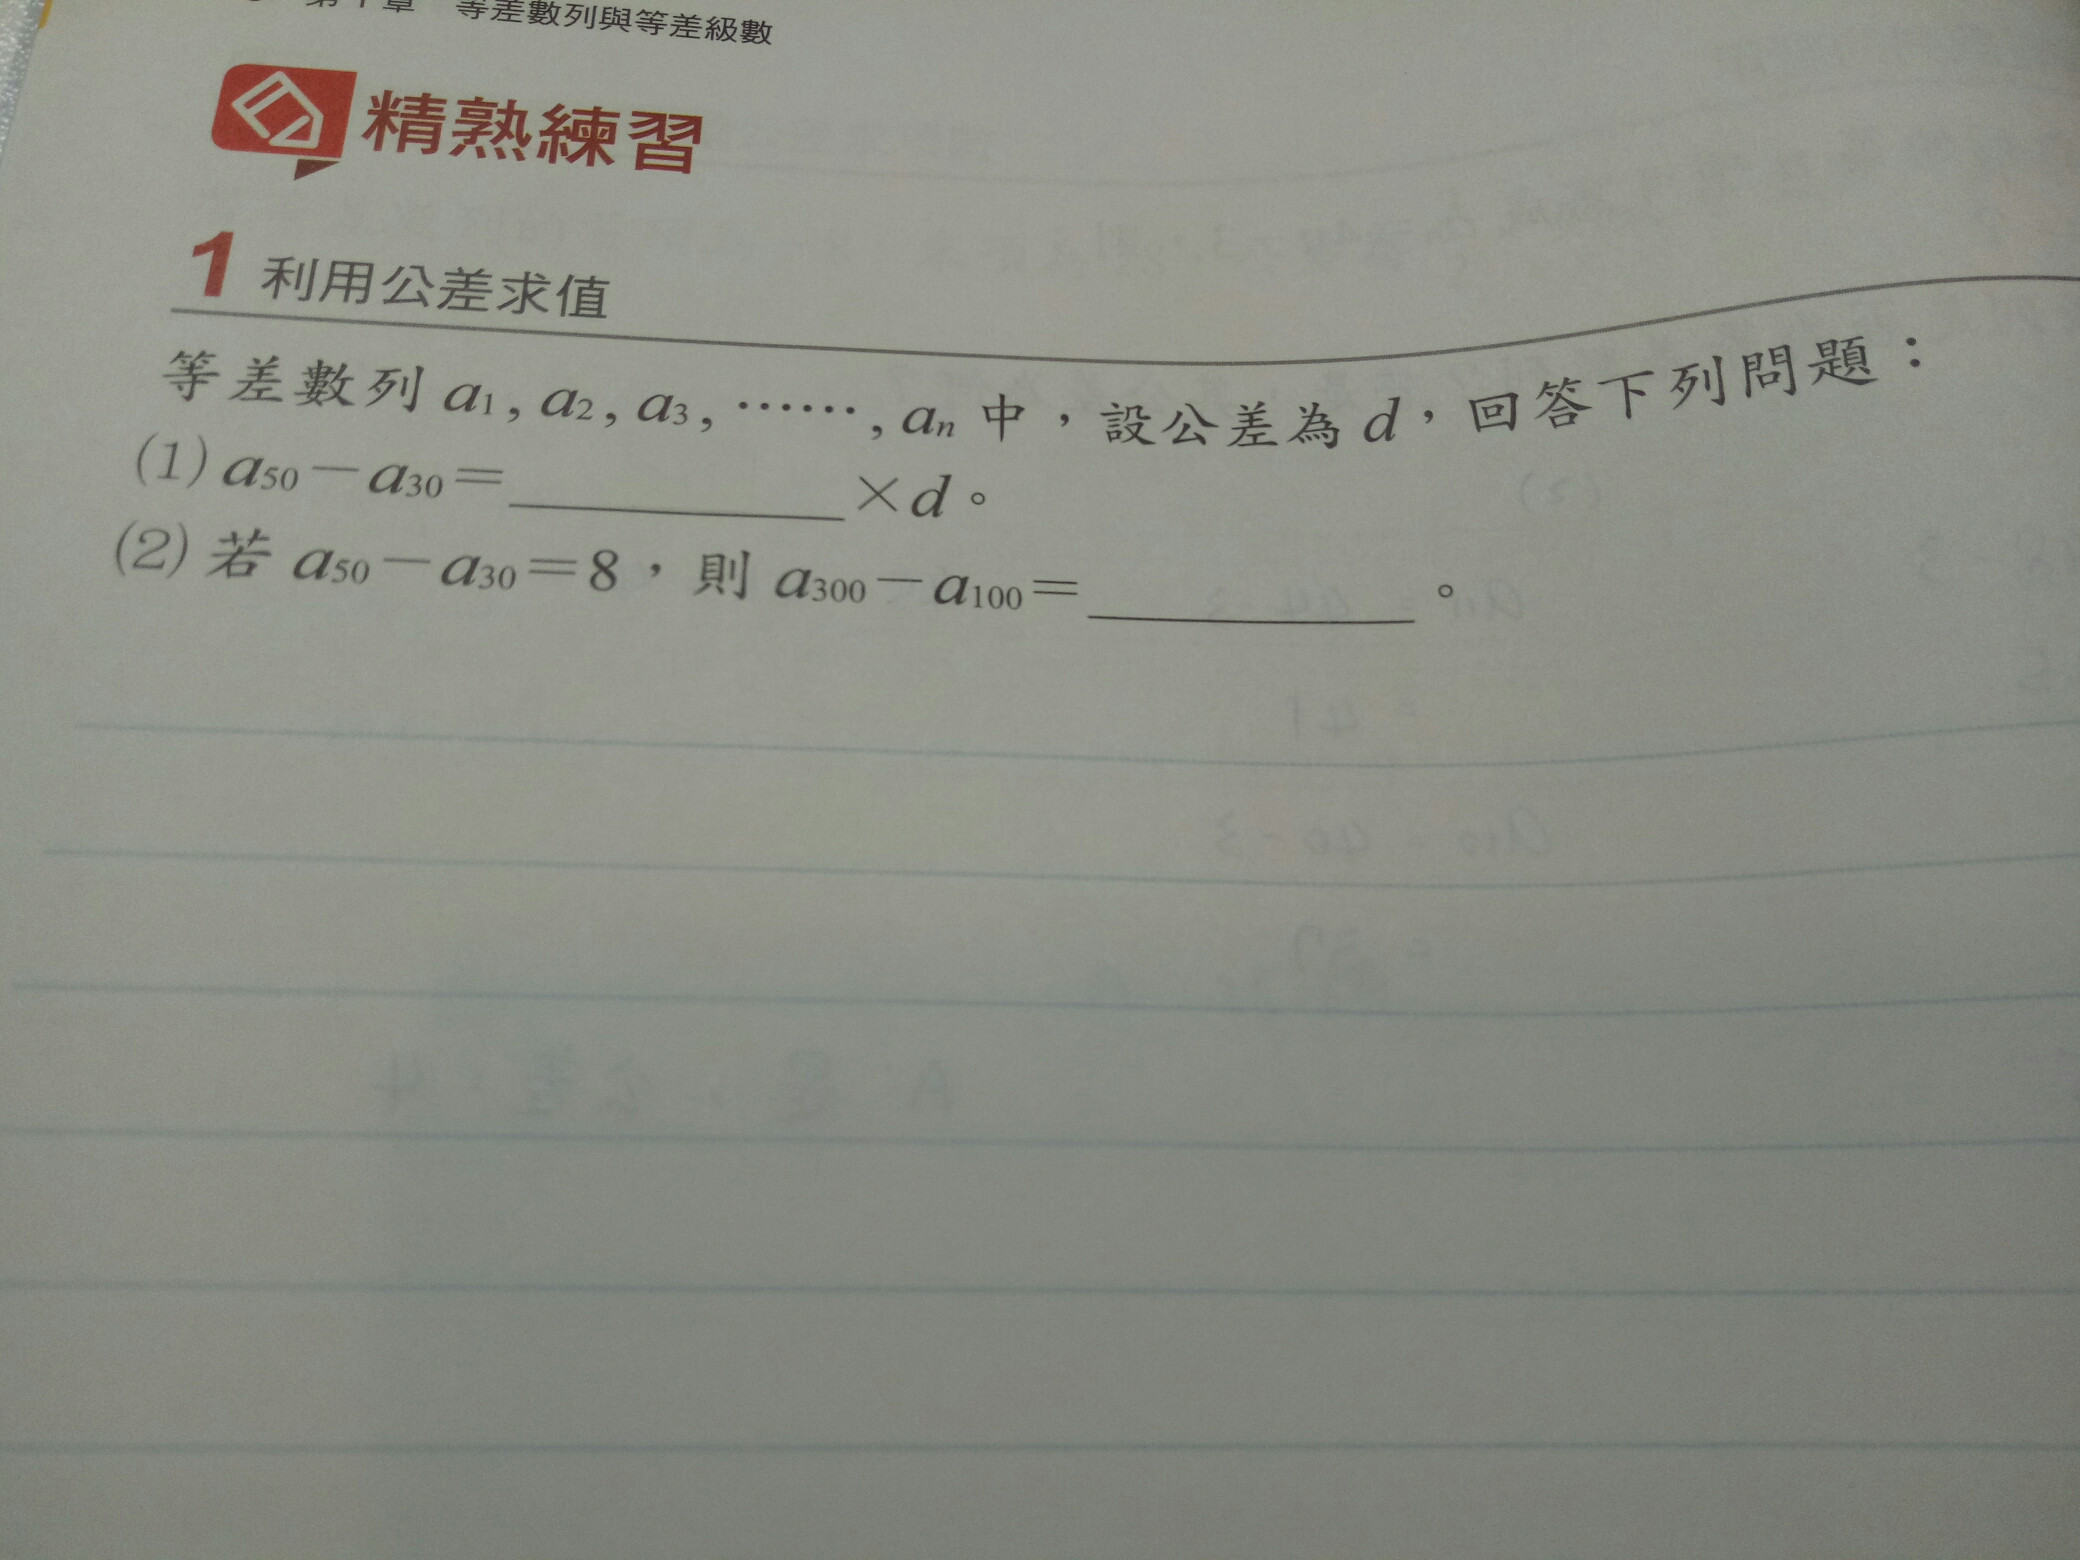 章 等差數列與等差級數
精熟練習
1 利用公差求值
等差數列 a1 , a2 , a3 , …… , an 中，設公差為 d，回答下列問題：
(1) a50－a30＝__________×d。
(2) 若 a50－a30＝8，則 a300－a100＝__________。